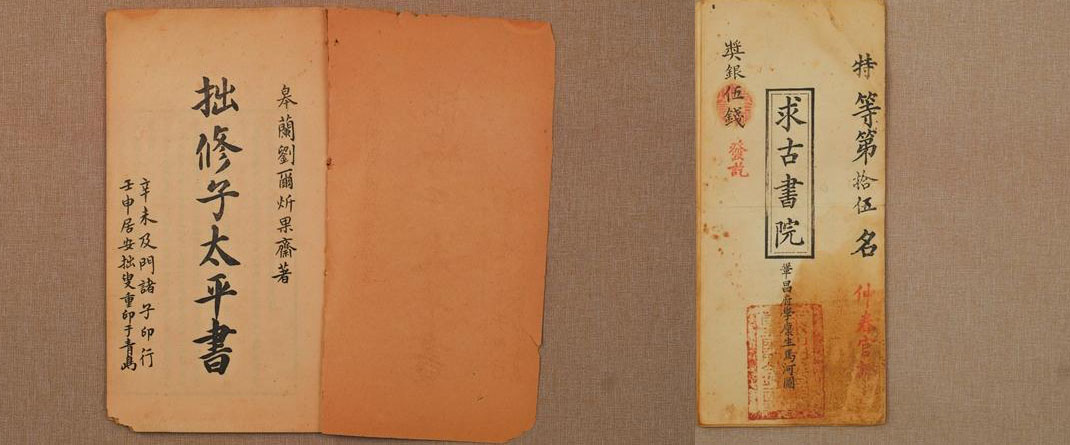 皋蘭劉爾炘果齋著
拙修子太平書
辛未及門諸子印行
壬申居安拙叟重印于青島
特等第拾伍名
仲春官課
求古書院
鞏昌府學廩生馬河圖
獎銀伍錢
發訖